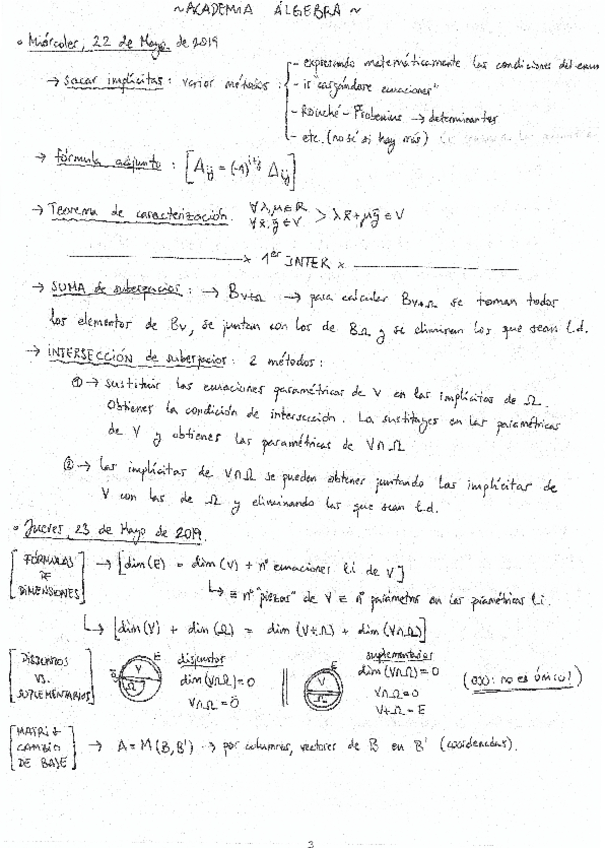 ~ACADEMIA ÁLGEBRA~
• Miércoles, 22 de Mayo de 2019
→ sacar implícitas: varios métodos: - expresando matemáticamente las condiciones del
- ir cargándose ecuaciones
- Rouché-Frobenius → determinantes
- etc. (no sé si hay más)
→ fórmula adjunto: [Aij = (-1)^{i+j} Δij]
→ Teorema de caracterización. ∀λ,μ∈R
∀x̄,ȳ∈V > λx̄+μȳ∈V
x 1er INTER x
→ SUMA de subespacios: → B_{V+Ω} → para calcular B_{V+Ω} se toman todos
los elementos de B_V, se juntan con los de B_Ω y se eliminan los que sean l.d.
→ INTERSECCIÓN de subespacios: 2 métodos:
① → sustituir las ecuaciones paramétricas de V en las implícitas de Ω.
Obtienes la condición de intersección. La sustituyes en las paramétricas
de V y obtienes las paramétricas de V∩Ω
② → las implícitas de V∩Ω se pueden obtener juntando las implícitas de
V con las de Ω y eliminando las que sean l.d.
• Jueves, 23 de Mayo de 2019.
[FÓRMULAS DE DIMENSIONES] → [dim(E) = dim(V) + nº ecuaciones l.i de V]
↳ ≡ nº "piezas" de V ≡ nº parámetros en las paramétricas l.i.
↳ [dim(V) + dim(Ω) = dim(V+Ω) + dim(V∩Ω)]
[DISJUNTOS VS. SUPLEMENTARIOS]
E
V
Ω
disjuntos
dim(V∩Ω)=0
V∩Ω=Ō
E
V
Ω
suplementarios
dim(V∩Ω)=0
V∩Ω=0
V+Ω=E
(ojo: no es único!)
[MATRIZ CAMBIO DE BASE] → A = M(B,B') → por columnas, vectores de B en B' (coordenadas).
3